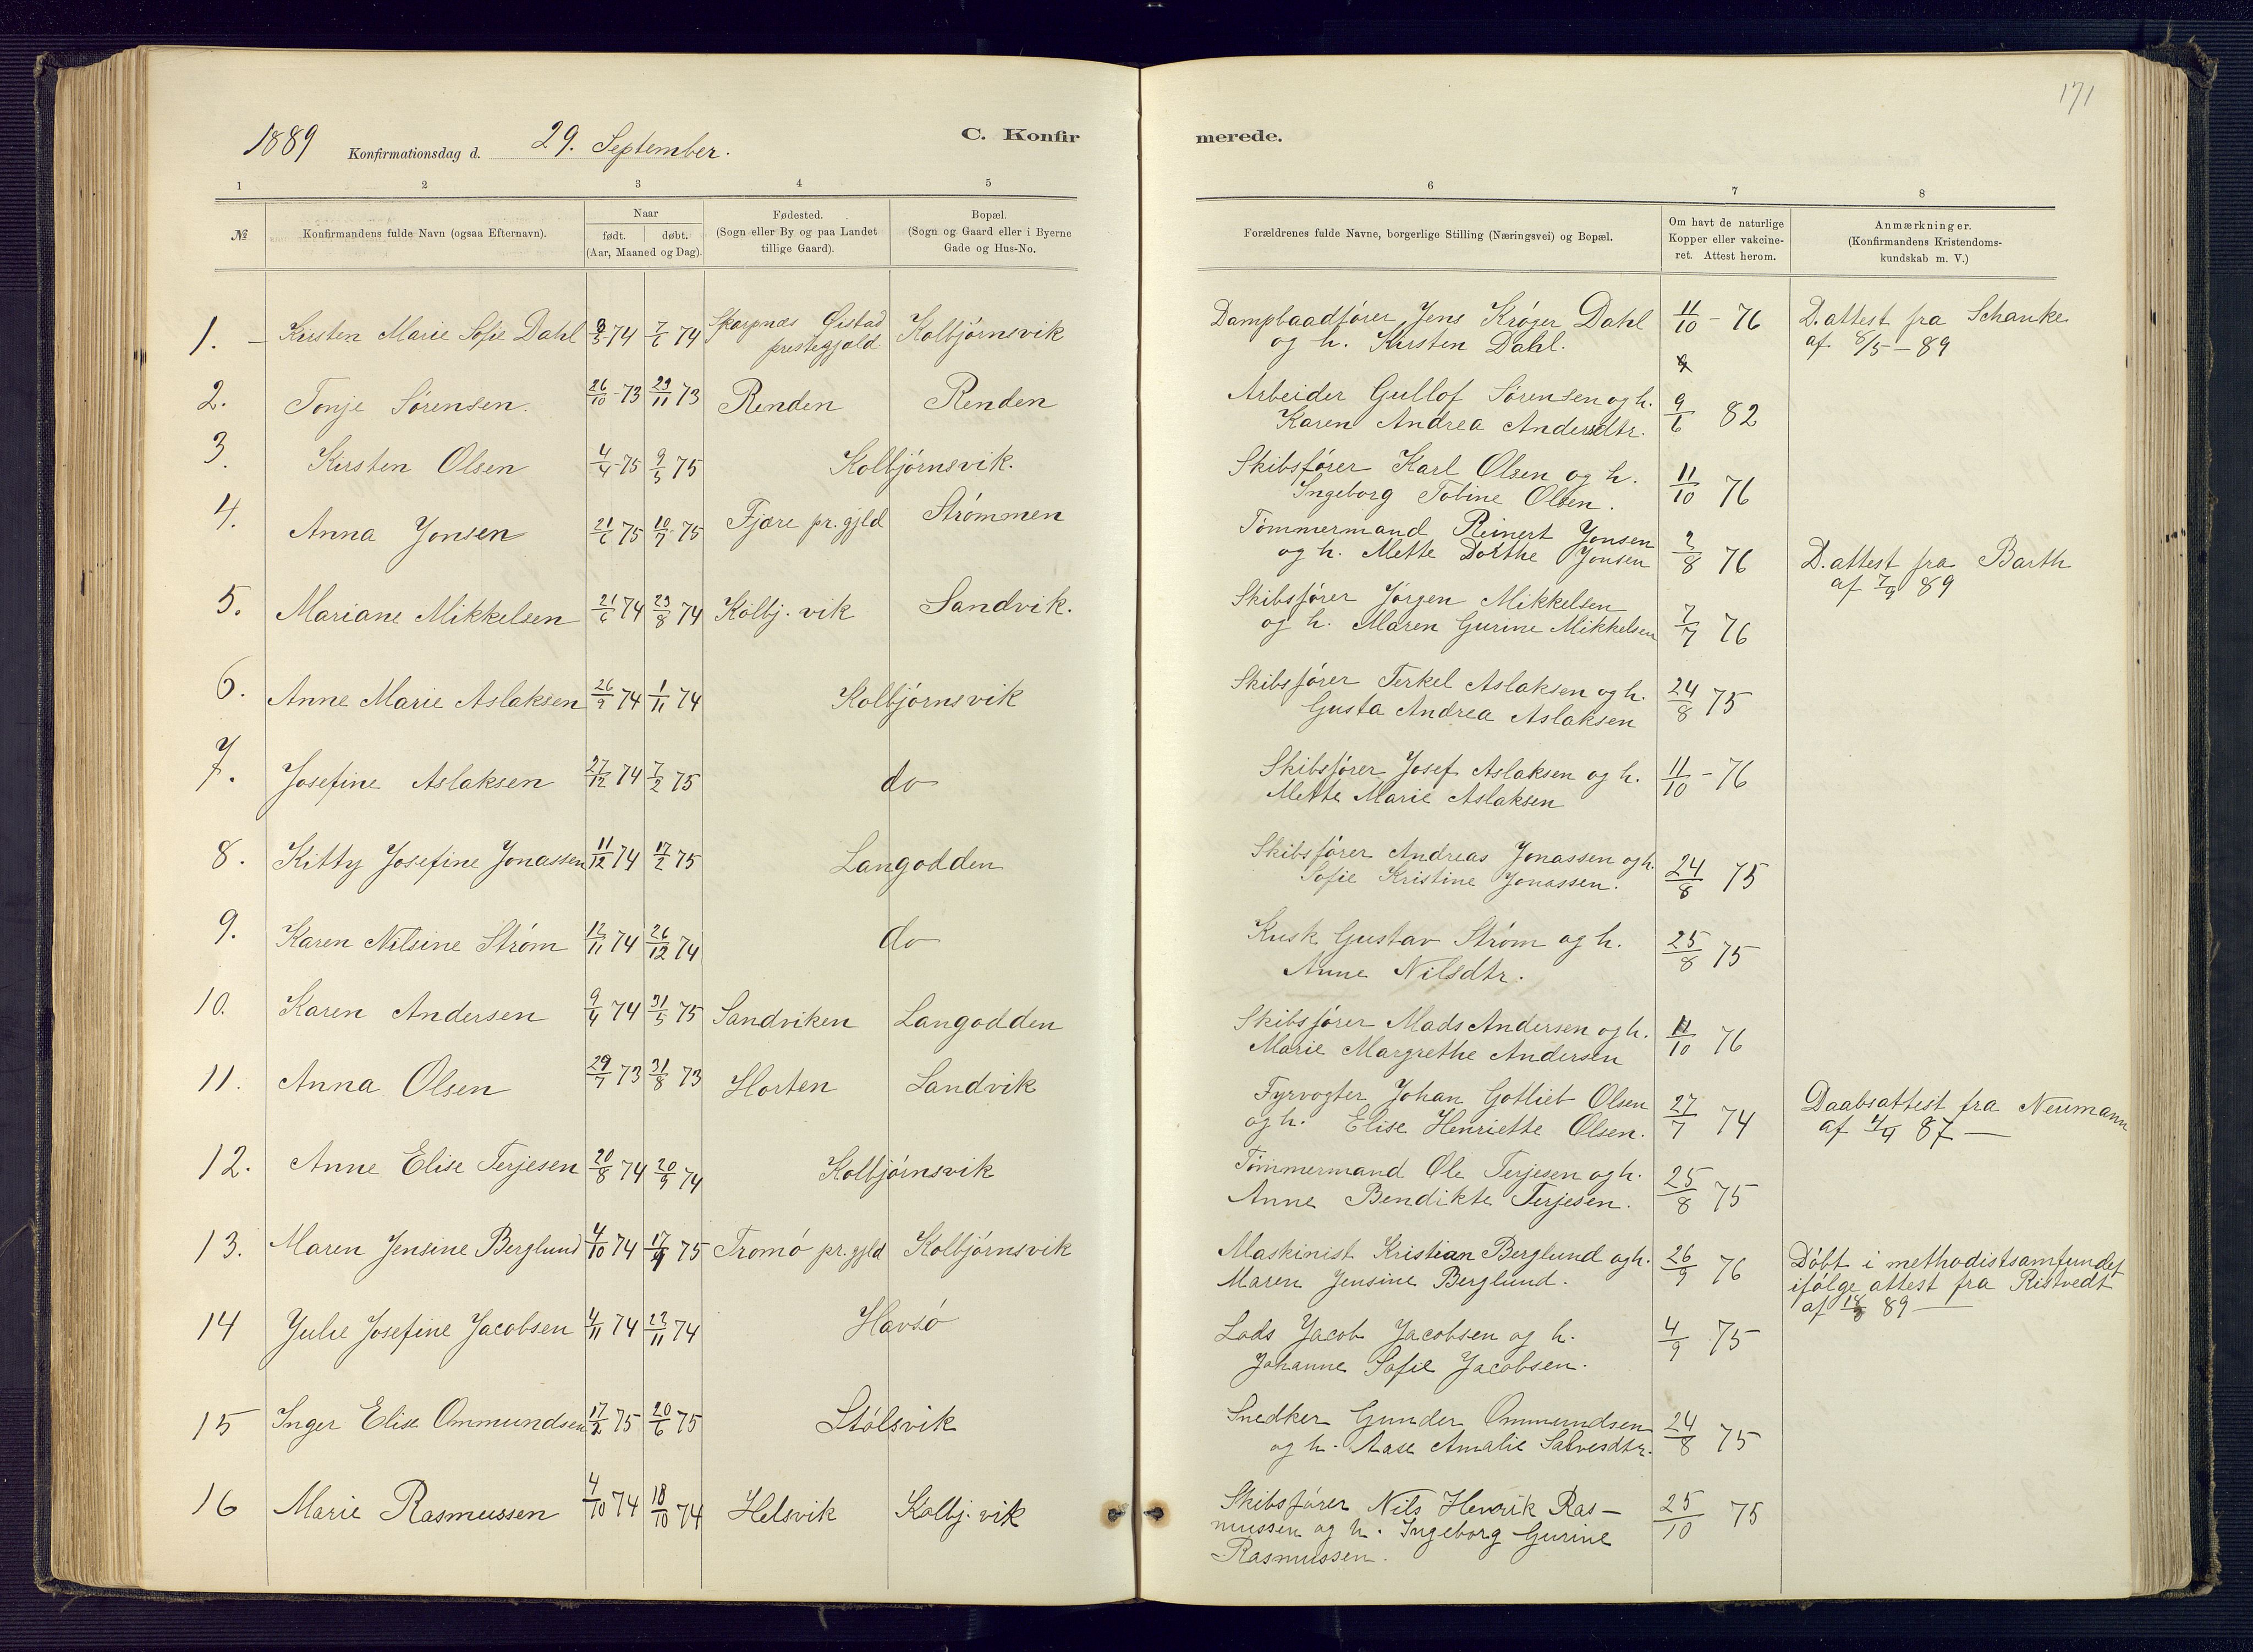 171
1889 Konfirmationsdag d. 29. September.
C. Konfirmerede.
1 2 3 4 5 6 7 8
№
Konfirmandens fulde Navn (ogsaa Efternavn).
Naar
født. døbt.
(Aar, Maaned og Dag).
Fødested.
(Sogn eller By og paa Landet
tillige Gaard).
Bopæl.
(Sogn og Gaard eller i Byerne
Gade og Hus-No.
Forældrenes fulde Navne, borgerlige Stilling (Næringsvei) og Bopæl.
Om havt de naturlige
Kopper eller vakcine-
ret. Attest herom.
Anmærkninger.
(Konfirmandens Kristendoms-
kundskab m. V.)
1. Kirsten Marie Sofie Dahl 9/3 74 7/6 74 Skarpnæs Øistad Kolbjørnsvik Dampbaadfører Jens Krøger Dahl 11/10 - 76 D. attest fra Schanke
prestegjald og h. Kirsten Dahl. af 8/5 - 89
2. Tonje Sørensen. 26/10 73 29/11 73 Renden Renden Arbeider Gullof Sørensen og h. 9/6 82
Karen Andrea Andersdtr.
3. Kirsten Olsen 4/4 75 9/5 75 Kolbjørnsvik. Skibsfører Karl Olsen og h. 11/10 76
Ingeborg Tobine Olsen.
4. Anna Jonsen 21/6 75 10/7 75 Fjære pr. gjld Strømmen Tømmermand Reinert Jonsen
og h. Mette Dorthe Jonsen 2/8 76 D. attest fra Barth
af 7/9 89
5. Mariane Mikkelsen 21/6 74 23/8 74 Kolbj. vik Sandvik. Skibsfører Jørgen Mikkelsen
og h. Maren Gurine Mikkelsen 7/7 76
6. Anne Marie Aslaksen 26/9 74 1/11 74 Kolbjørnsvik Skibsfører Terkel Aslaksen og h. 24/8 75
Gusta Andrea Aslaksen
7. Josefine Aslaksen 27/12 74 7/2 75 do Skibsfører Josef Aslaksen og h. 11/10 - 76
Mette Marie Aslaksen
8. Kitty Josefine Jonassen 11/12 74 17/2 75 Langodden Skibsfører Andreas Jonassen og h. 24/8 75
Sofie Kristine Jonassen.
9. Karen Nilsine Strøm 12/11 74 26/12 74 do Kusk Gustav Strøm og h. 25/8 75
Anne Nilsdtr.
10. Karen Andersen 9/4 74 31/5 75 Sandviken Langodden Skibsfører Mads Andersen og h. 11/10 76
Marie Margrethe Andersen
11. Anna Olsen 29/7 73 31/8 73 Horten Sandvik Fyrvogter Johan Gotlieb Olsen 27/7 74 Daabsattest fra Neumann
og h. Elise Henriette Olsen. af 87 —
12. Anne Elise Terjesen 20/8 74 20/9 74 Kolbjørnsvik Tømmermand Ole Terjesen og h. 25/8 75
Anne Bendikte Terjesen.
13. Maren Jensine Berglund 4/10 74 17/9 75 Tromø pr. gjld Kolbjørnsvik Maskinist Kristian Berglund og h. 26/9 76 Døbt i methodistsamfundet
Maren Jensine Berglund. ifølge attest fra Ristvedt
af 89 —
14 Julie Josefine Jacobsen 4/11 74 22/11 74 Havsø Lods Jacob Jacobsen og h. 4/9 75
Johanne Sofie Jacobsen.
15 Inger Elise Ommundsen 17/2 75 20/6 75 Stølsvik Snedker Gunder Ommundsen 24/8 75
og h. Aase Amalie Salvesdtr.
16 Marie Rasmussen 4/10 74 18/10 74 Helsvik Kolbj. vik Skibsfører Nils Henrik Ras- 25/10 75
mussen og h. Ingeborg Gurine
Rasmussen.